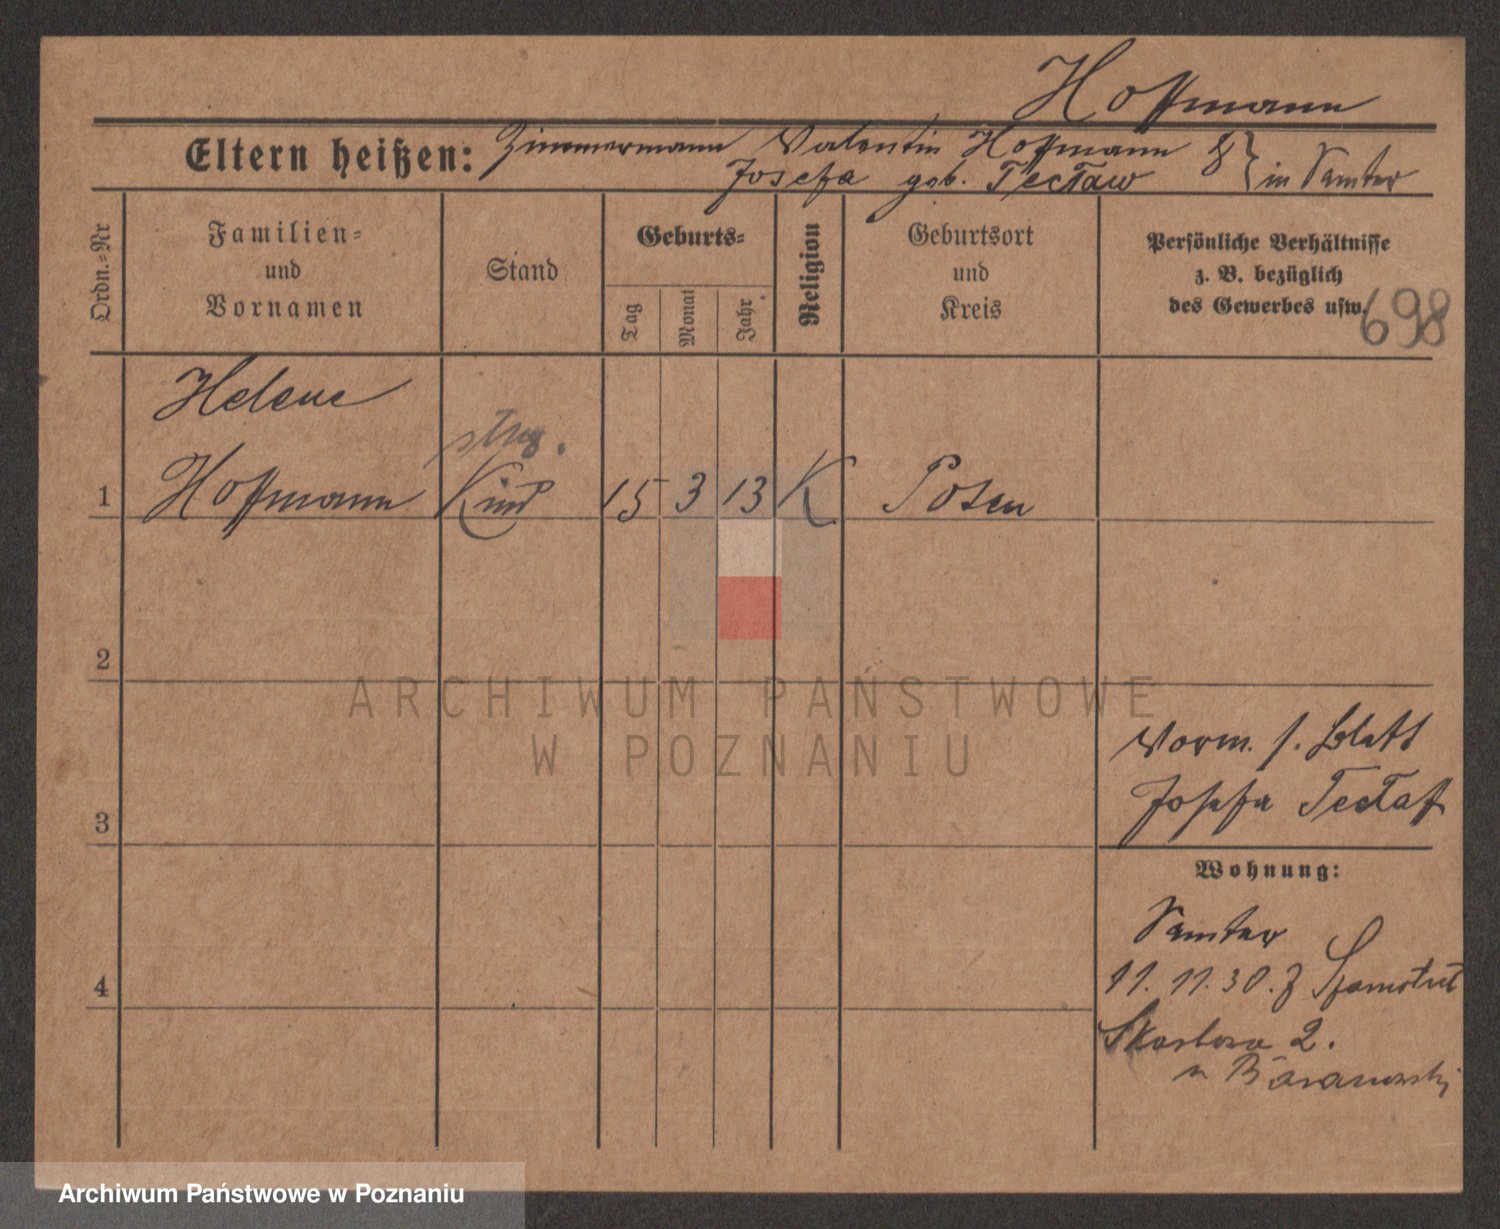 Hoffmann
Eltern heißen: Zimmermann Valentin Hoffmann &
Josefa geb. Tectaw } in Samter
Ordn.=Nr
Familien=
und
Vornamen
Stand
Geburts=
Tag
Monat
Jahr
Religion
Geburtsort
und
Kreis
Persönliche Verhältnisse
z. B. bezüglich
des Gewerbes usw.
698
Helene
1 Hoffmann Kind 15 3 13 K Posen
2
ARCHIWUM PAŃSTWOWE
W POZNANIU
Vorm. s. Blatt
3 Josefa Tectaf
Wohnung:
Samter
4 11. 11. 30. z
2.
Baranowski
Archiwum Państwowe w Poznaniu